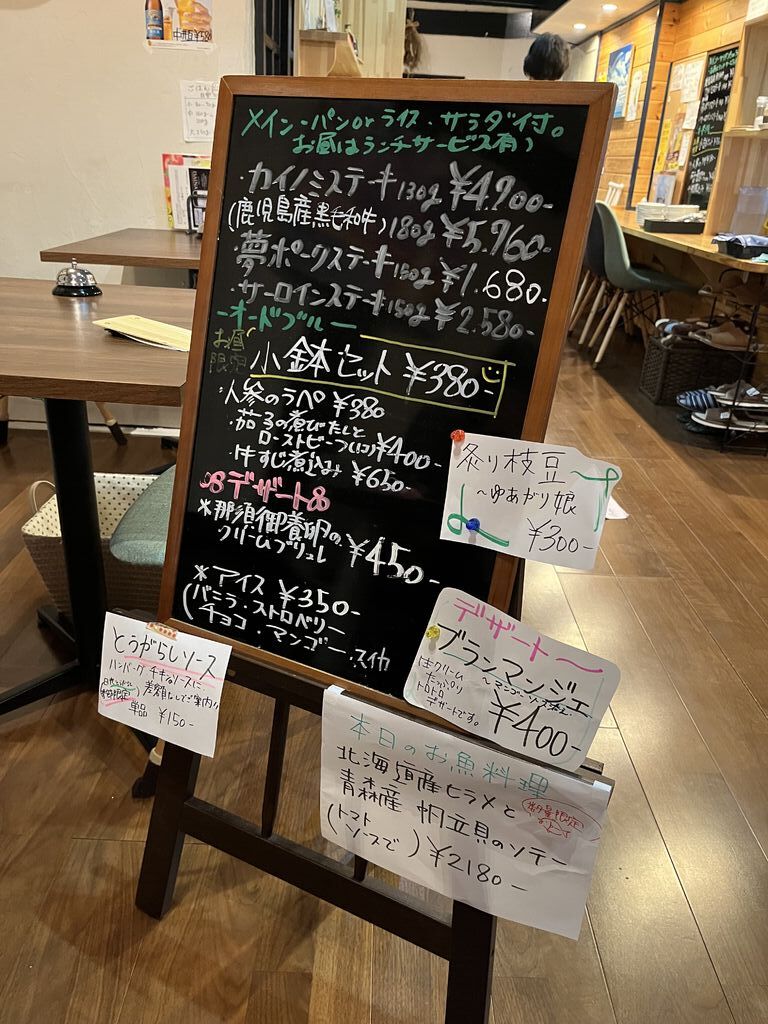 メイン・パンorライス・サラダ付。
お昼はランチサービス有)
・カイノミステーキ130g ¥4.900-
(鹿児島産黒毛和牛)180g ¥5.960-
・夢ポークステーキ150g ¥1.680-
・サーロインステーキ150g ¥2.580-
-オードブルー
お昼
限定
小鉢セット ¥380-
・人参のラペ ¥380
・茄子の煮びたしと
ローストビーフ ¥400-
・牛すじ煮込み ¥650-
デザート
※那須御養卵の
クリームブリュレ ¥450-
※アイス ¥350-
(バニラ・ストロベリー
チョコ・マンゴー・スイカ
炙り枝豆
～ゆあがり娘
¥300-
デザート～
ブランマンジェ
～マンゴーソース
生クリーム
たっぷり
トロトロ
デザートです。
¥400-
とうがらしソース
ハンバーグ チキンソースに
差額なしでご案内!!
単品 ¥150-
本日のお魚料理
北海道産ヒラメと
青森産 帆立貝のソテー
数量限定
(トマト
ソースで) ¥2180-